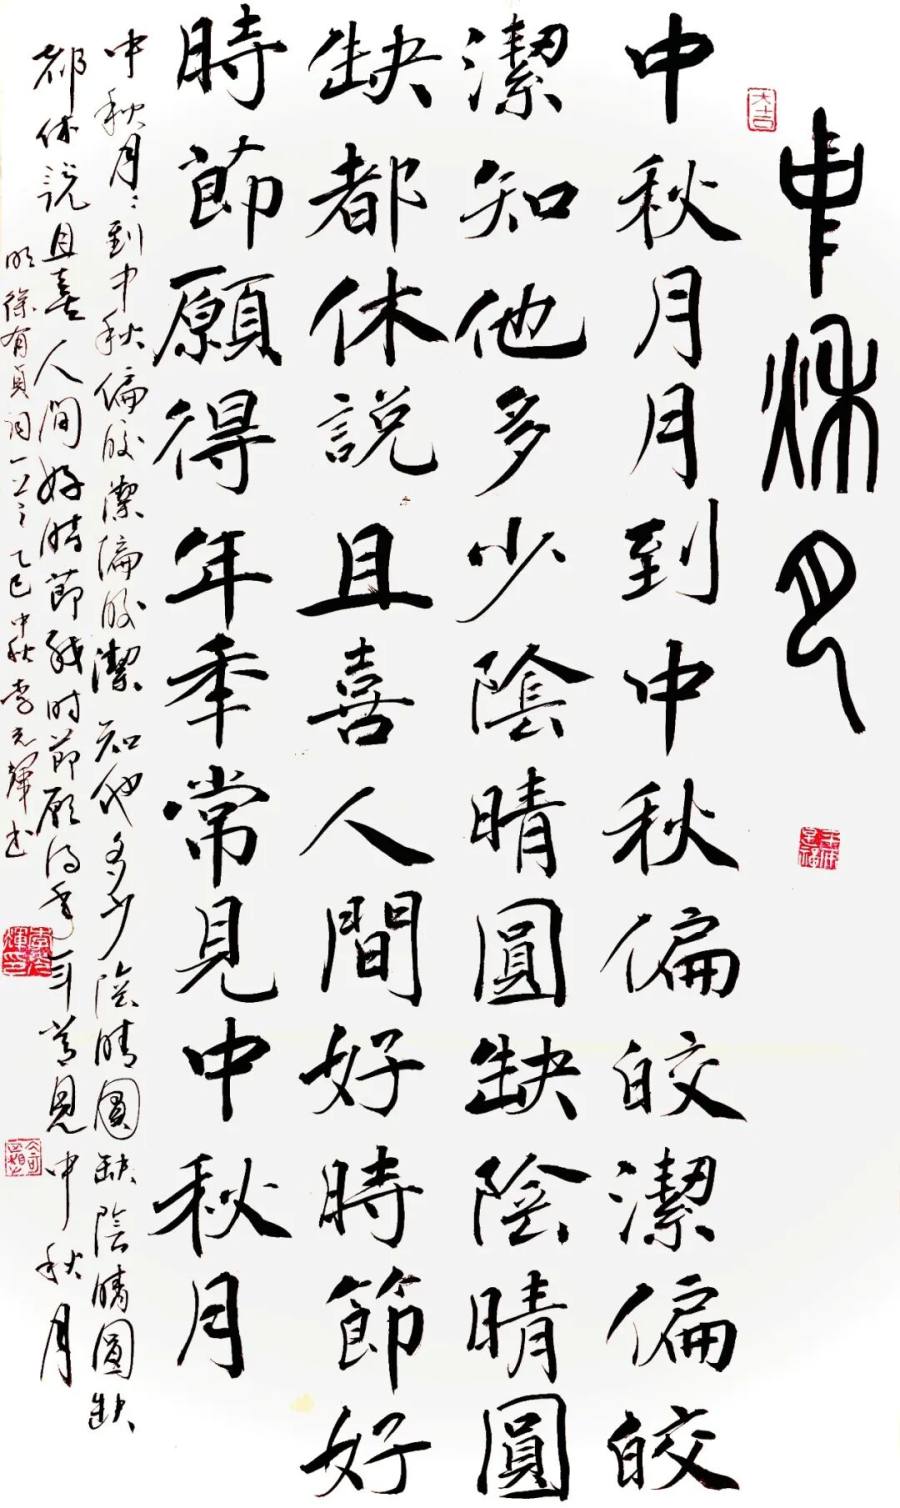 中秋月
大吉
中秋月月到中秋偏皎潔偏皎
潔知他多少陰晴圓缺陰晴圓
缺都休説且喜人間好時節好
時節願得年年常見中秋月
中秋月〻到中秋偏皎潔偏皎潔知他多少陰晴圓缺陰晴圓缺
都休説且喜人間好時節好时節願得年年常見中秋月
明徐有貞詞一首乙巳中秋李光輝书